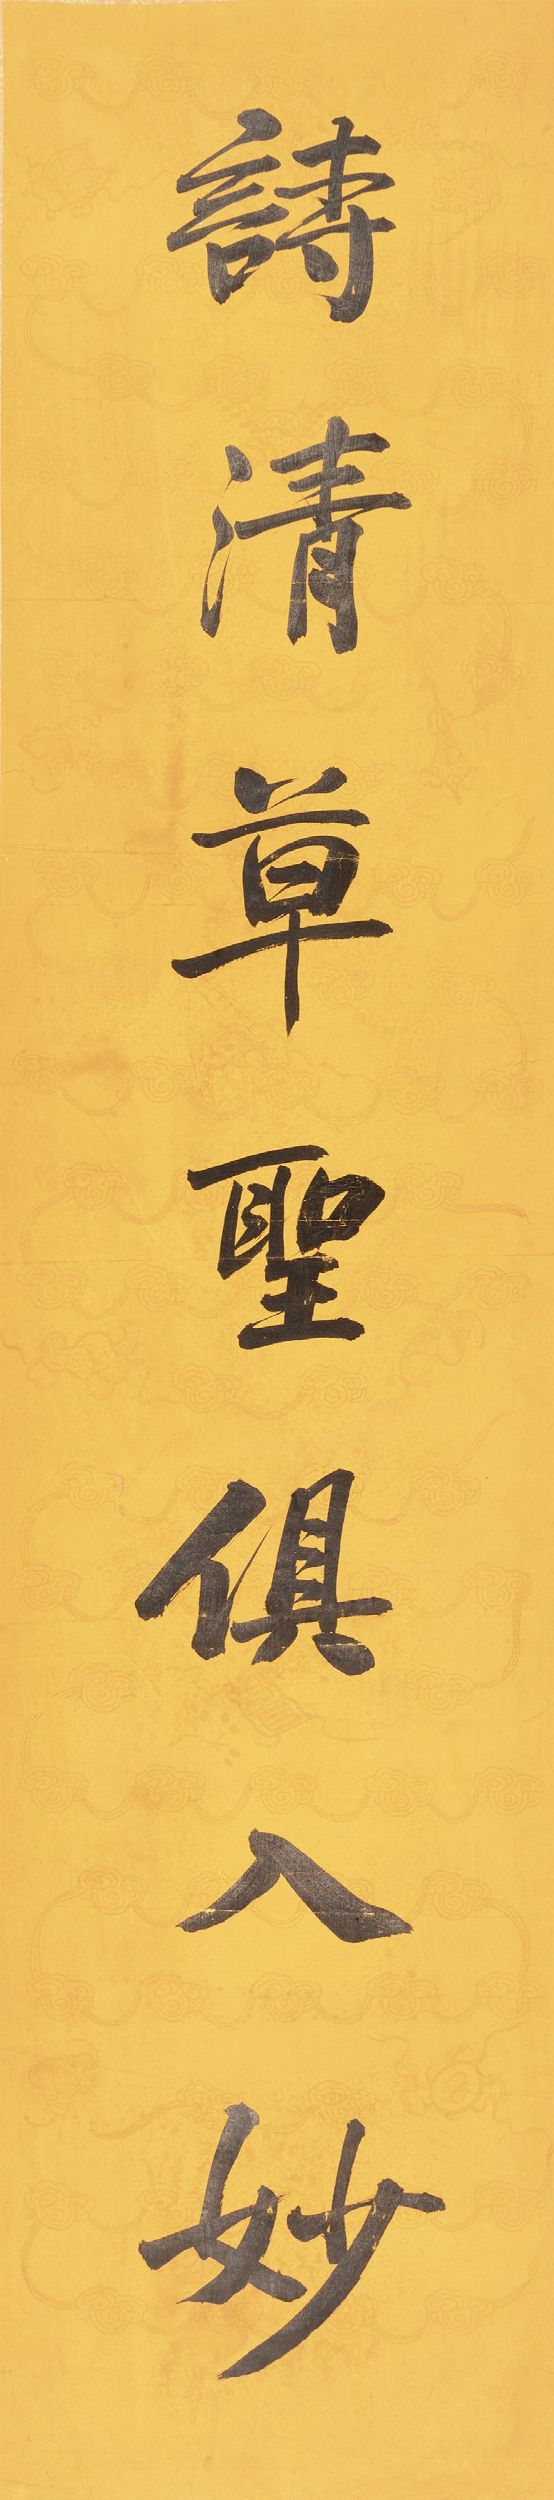 詩清草聖俱入妙